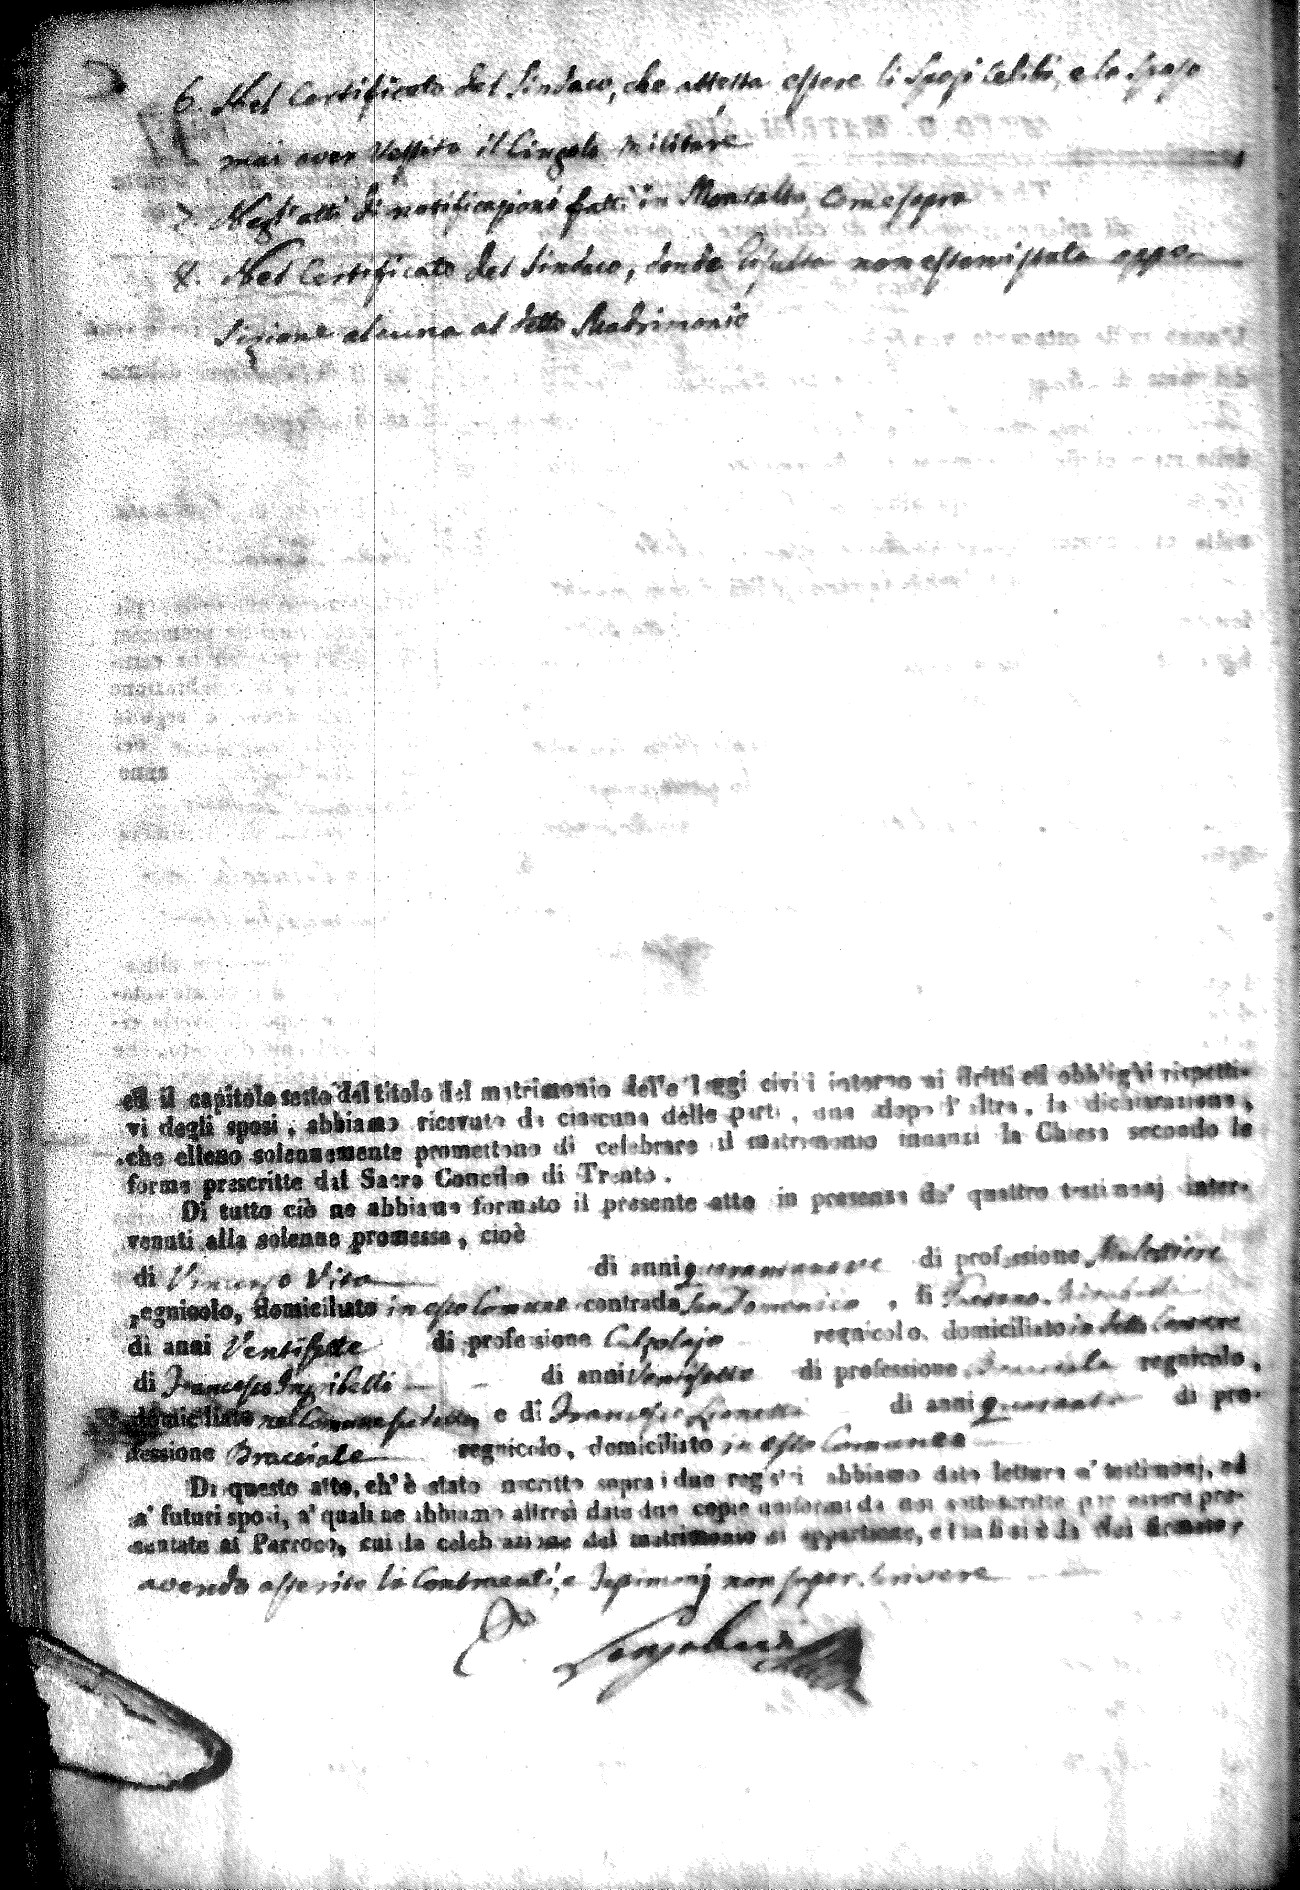 6. Nel Certificato del Sindaco, che attesta essere li Sposi Celibi, e lo Sposo
mai aver vestito il Cingolo militare
7. Negl'atti di notificazioni fatti in Montalto come sopra
8. Nel Certificato del Sindaco, donde risulta non essere stata oppo-
sizione alcuna al detto Matrimonio
ed il capitolo sesto del titolo del matrimonio delle leggi civili intorno ai dritti ed obblighi rispetti-
vi degli sposi, abbiamo ricevuto da ciascuna delle parti, una dopo l'altra, la dichiarazione,
che elleno solennemente promettono di celebrare il matrimonio innanzi la Chiesa secondo le
forme prescritte dal Sacro Concilio di Trento.
Di tutto ciò ne abbiamo formato il presente atto in presenza de' quattro testimonj inter-
venuti alla solenne promessa, cioè
di Vincenzo Vita di anni quarantanove di professione Mulattiere
regnicolo, domiciliato in esso Comune contrada San Domenico, di
di anni Ventisette di professione Calzolajo regnicolo, domiciliato in detto Comune
di Francesco di anni Ventisette di professione Bracciale regnicolo,
domiciliato nel Comune e di Francesco di anni quaranta di pro-
fessione Bracciale regnicolo, domiciliato in esso Comune
Di questo atto, ch'è stato inscritto sopra i due registri abbiamo dato lettura a' testimonj, ed
a' futuri sposi, a' quali ne abbiamo altresì dato due copie uniformi da noi sottoscritte per essere pre-
sentate al Parroco, cui la celebrazione del matrimonio si appartiene, e indi si è da noi firmato,
avendo asserito li Contraenti, e Testimonj non saper scrivere